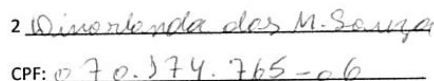 2 Dinorlanda dos M. Souza
CPF: 070.574.765-06